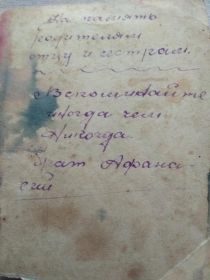 На память
родителям
отцу и сестрам.
Вспоминайте
иногда чем
Никогда
брат Афана-
сий